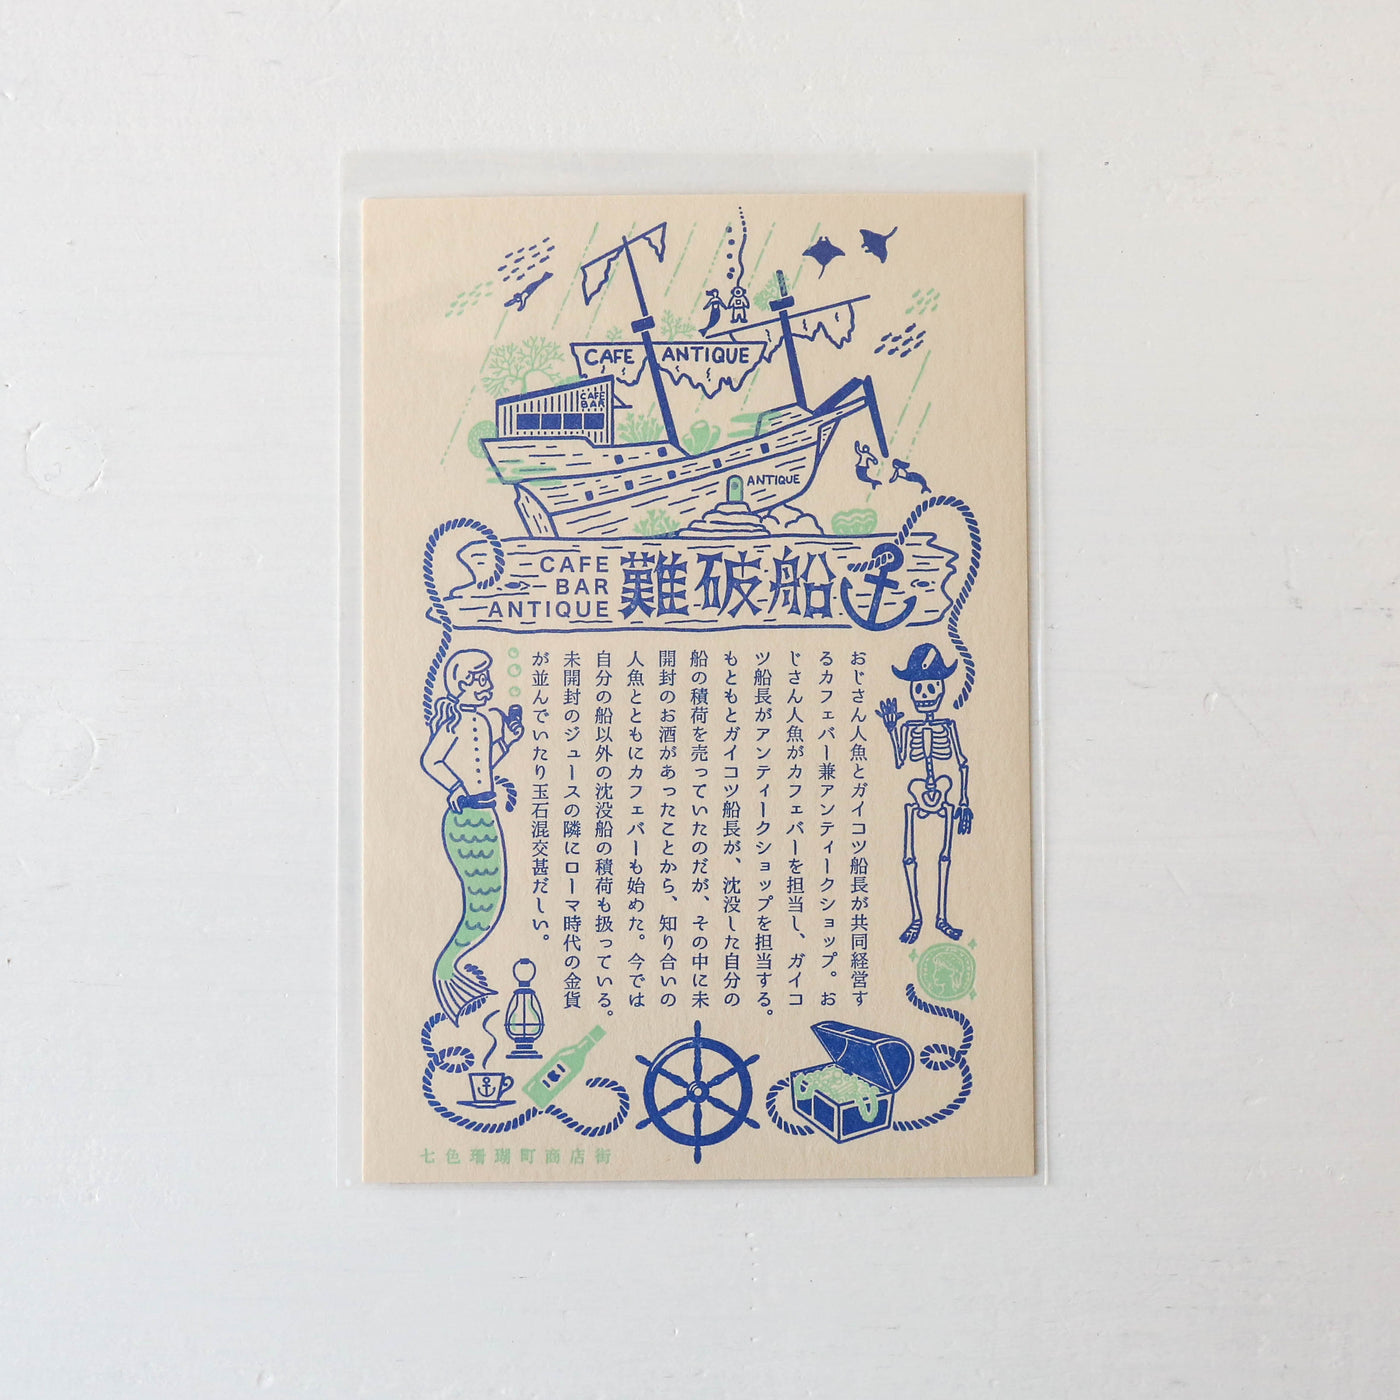 CAFE ANTIQUE
CAFE
BAR
ANTIQUE
CAFE
BAR
ANTIQUE
難破船
おじさん人魚とガイコツ船長が共同経営す
るカフェバー兼アンティークショップ。お
じさん人魚がカフェバーを担当し、ガイコ
ツ船長がアンティークショップを担当する。
もともとガイコツ船長が、沈没した自分の
船の積荷を売っていたのだが、その中に未
開封のお酒があったことから、知り合いの
人魚とともにカフェバーも始めた。今では
自分の船以外の沈没船の積荷も扱っている。
未開封のジュースの隣にローマ時代の金貨
が並んでいたり玉石混交甚だしい。
七色珊瑚町商店街